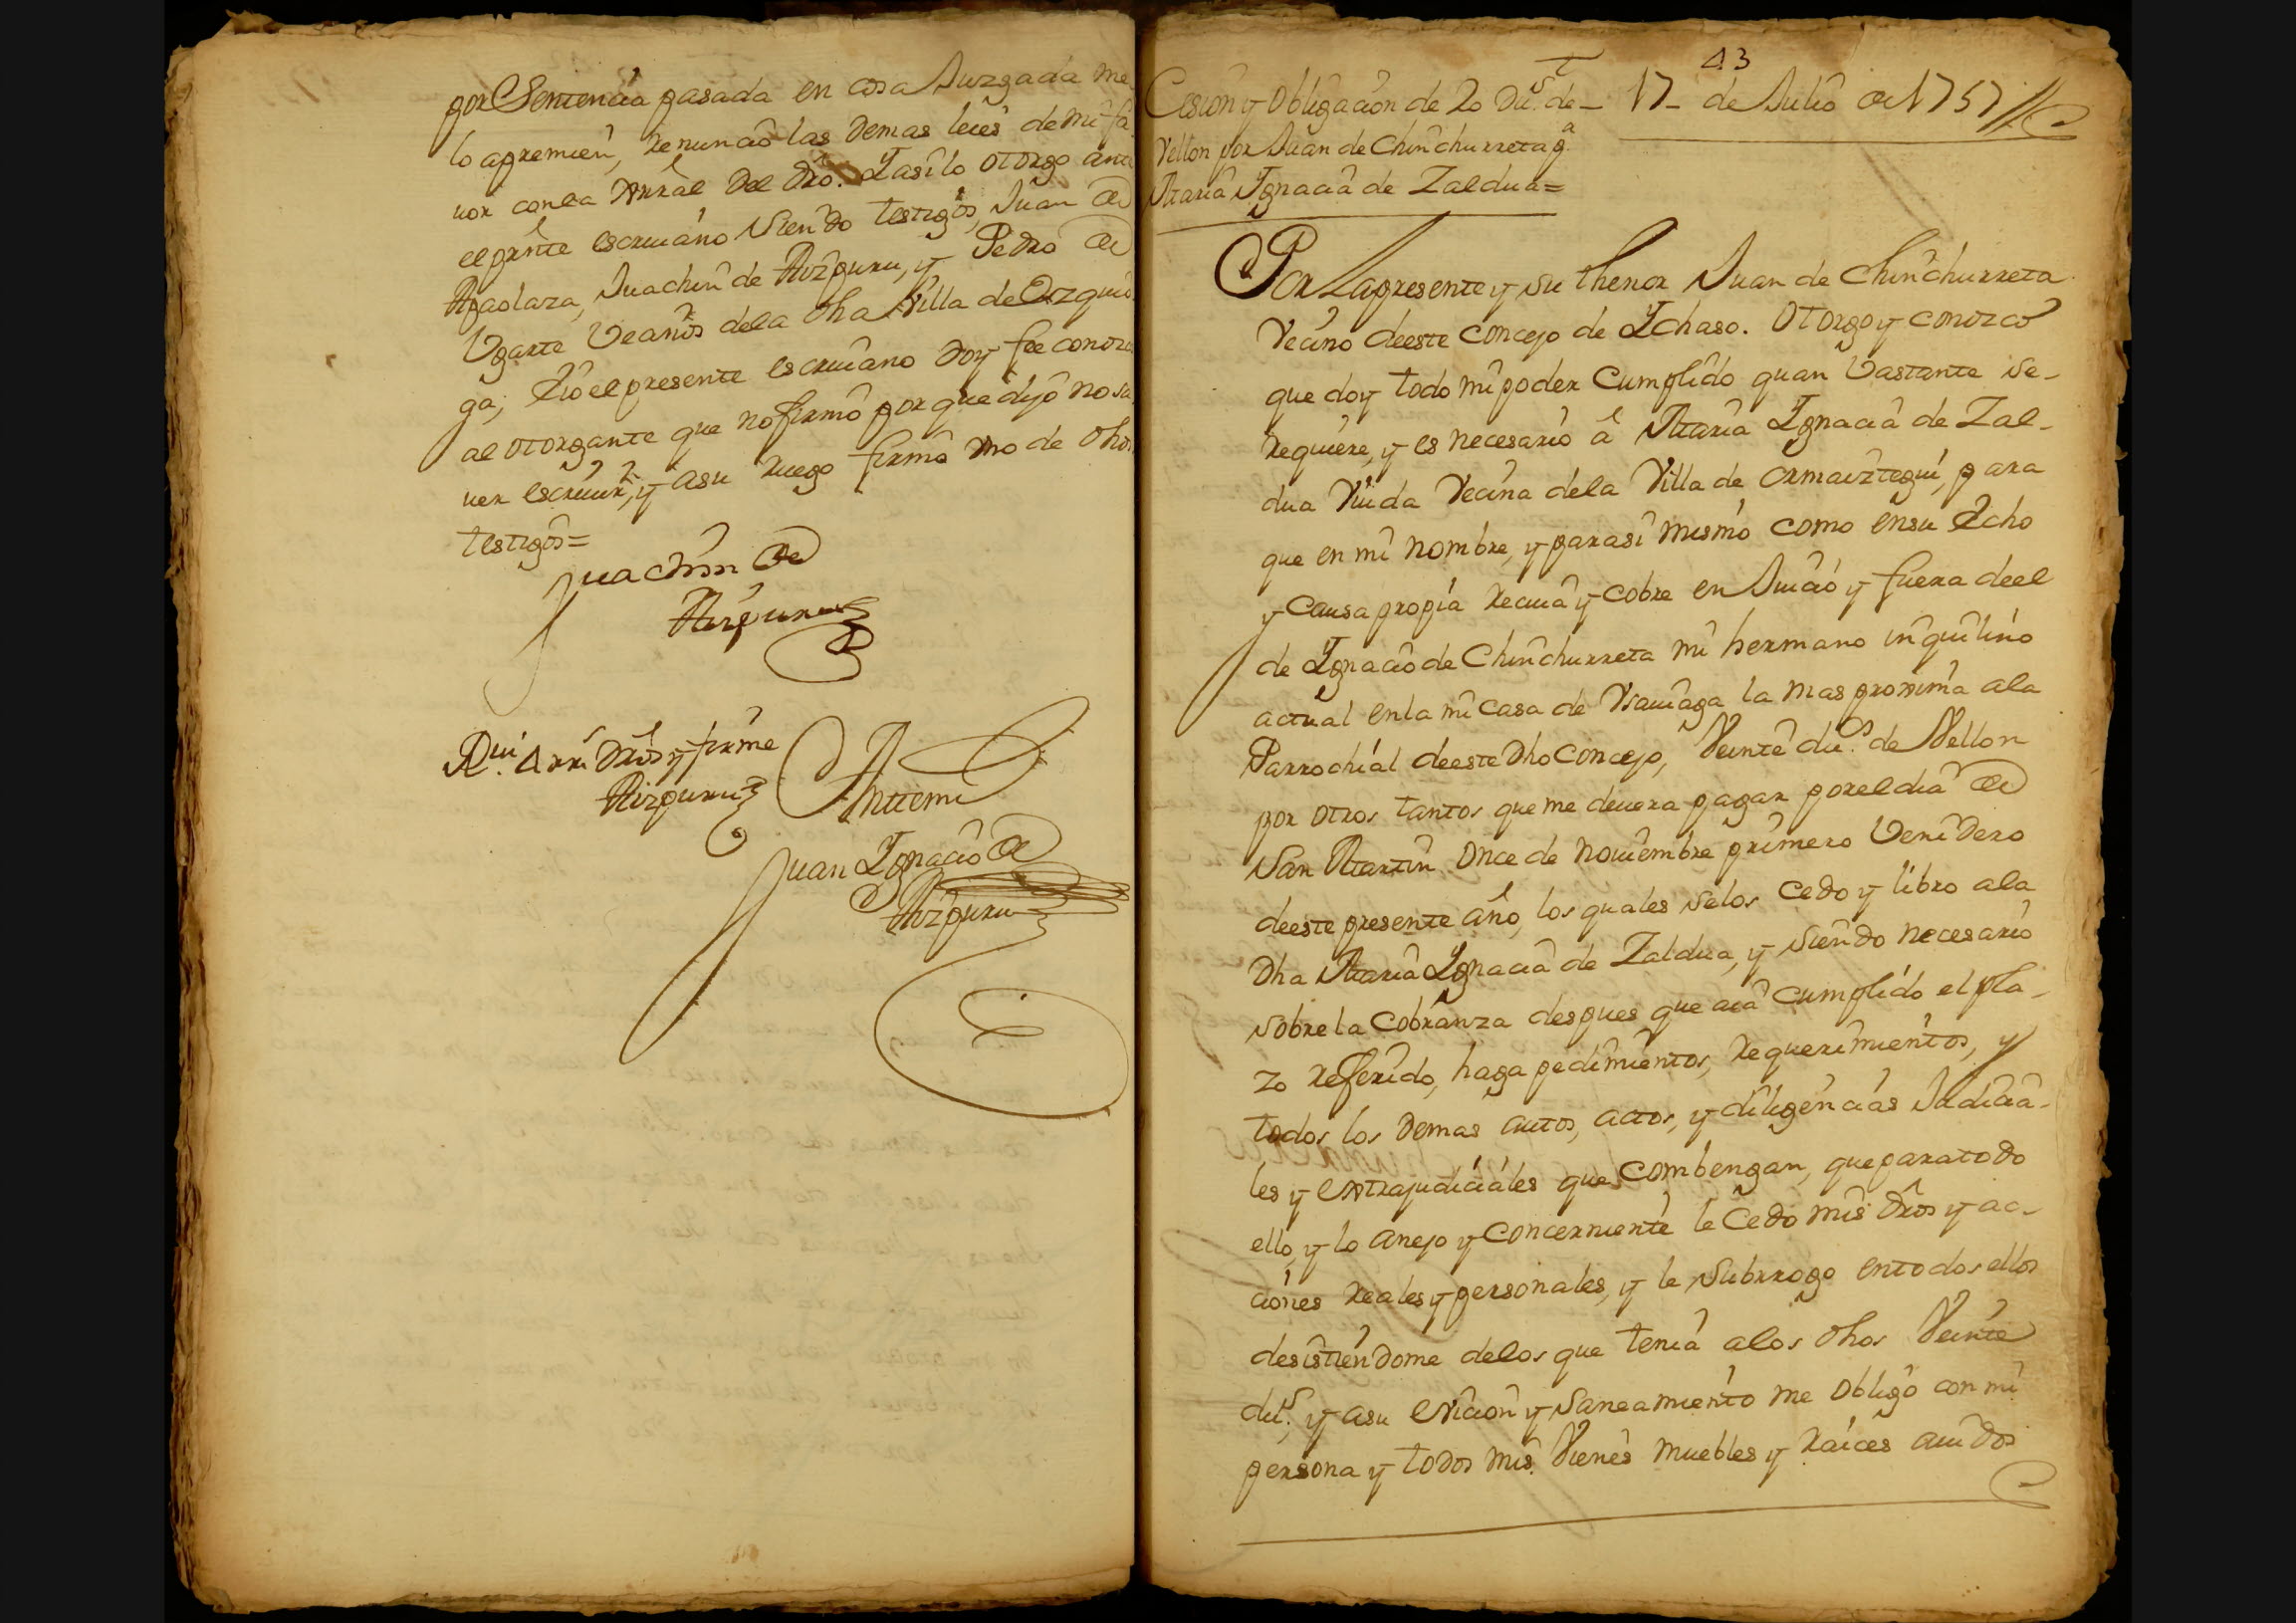 por Sentencia pasada en cosa Juzgada me
lo apremien, renuncio las demas leies de mi fa
uor con la Grâl del dro. Y asi lo otorgo ante
el prnte escriuano siendo testigos, Juan de
Apaolaza, Juachin de Aizpuru, y Pedro de
Ugarte Vecinos dela dha Villa de Ezquio
ga, E io el presente escriuano doy fee conozco
al otorgante que no firmô por que dijo no sa
uer escriuir, y a su ruego firmô uno de dhos
testigos=
Juachin de
Aizpuru
Rui. 4 rrs. drôs y firme
Aizpuru
Antemi
Juan Ygnacio de
Aizpuru
43
Cesion y Obligacion de 20 du.s de
Vellon por Juan de Chinchurreta p.a
Maria Ygnacia de Zaldua=
17_ de Julio de 1757
Por La presente y su thenor Juan de Chinchurreta
Vecino deeste concejo de Ychaso. Otorgo y conozco
que doy todo mi poder Cumplido quan Vastante se_
requiere, y es necesario â Maria Ygnacia de Zal_
dua Viuda Vecina dela Villa de Ormaiztegui, para
que en mi nombre, y para si mismo como en su Echo
y Causa propia reciua y cobre en Juicio y fuera deel
de Ygnacio de Chinchurreta mi hermano inquilino
actual en la mi Casa de Ysauiaga la mas proxima ala
Parrochial deeste dho Concejo, Veinte du.s de Vellon
por otros tantos que me deuera pagar por el dia de
San Martin Once de Nouiembre primero Venidero
deeste presente año, los quales se los Cedo y libro ala
dha Maria Ygnacia de Zaldua, y siendo necesario
sobre la Cobranza despues que aia Cumplido el pla_
zo referido, haga pedimientos, requerimientos, y
todos los demas autos, actos, y diligencias Judicia_
les y extrajudiciales que Combengan, que para todo
ello, y lo anejo y Concerniente le Cedo mis drôs y ac_
ciones reales y personales, y le Subrrogo en todos ellos
desistiendome delos que tenia alos dhos Veinte
du.s, y a su Eviccion y Saneamiento me Obligo con mi
persona y todos mis Vienes muebles y raices auidos